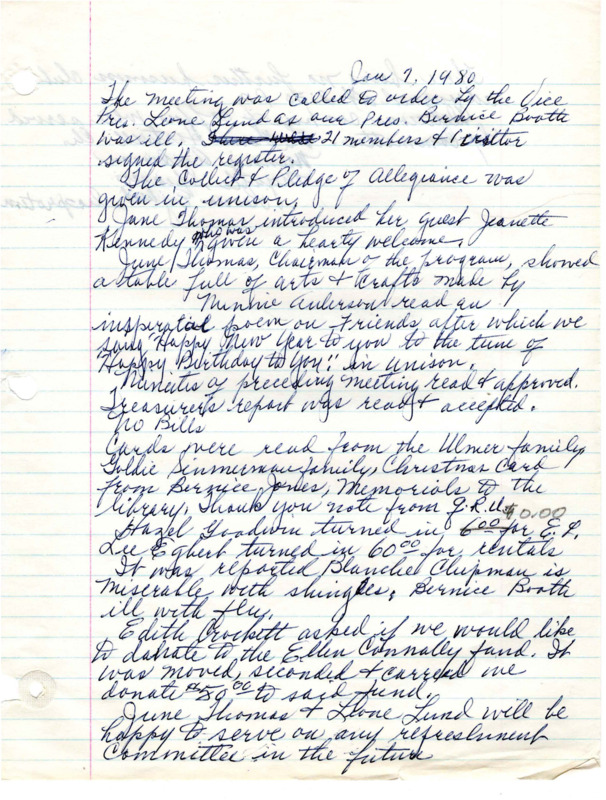 Jan 7, 1980
The meeting was called to order by the Vice
Pres. Leone Lund as our Pres. Bernice Booth
was ill. There were 21 members & 1 visitor
signed the register.
The Collect & Pledge of Allegiance was
given in unison.
June Thomas introduced her guest Jeanette
Kennedy who was given a hearty welcome.
June Thomas, Chairman o the program, showed
a table full of arts & crafts made by
Minnie Anderson read an
inspiratial poem on Friends, after which we
sang "Happy New Year to you to the tune of
"Happy Birthday to You". in unison.
Minutes of preceding meeting read & approved.
Treasurer's report was read & accepted.
No Bills
Cards were read from the Ulmer family,
Goldie Simmerman family, Christmas Card
from Bernice Jones, Memorials to the
library, Thank you note from
Hazel Goodwin turned in 6.00 $10.00 for E. L.
Lee Egbert turned in 60.00 for rentals
It was reported Blanche Chipman is
miserable with shingles, Bernice Booth
ill with flu.
Edith Crockett asked if we would like
to donate to the Ellen Connally fund. It
was moved, seconded & carried we
donate $50.00 to said fund.
June Thomas & Leone Lund will be
happy to serve on any refreshment
Committee in the future